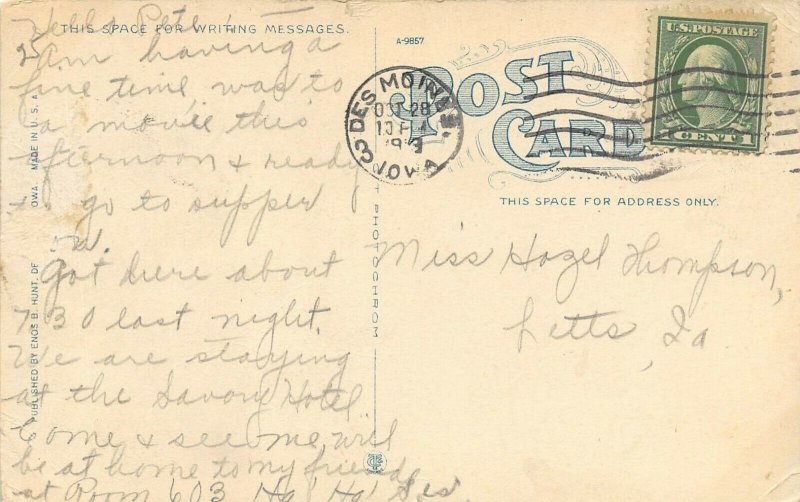 THIS SPACE FOR WRITING MESSAGES.
Hello Pete!
Am having a
fine time was to
a movie this
afternoon & ready
to go to supper
now.
Got here about
730 last night.
We are staying
at the Savory Hotel
Come & see me will
be at home to my friends
at Room 603 Ha! Ha! Sis
PUBLISHED BY ENOS B. HUNT, IOWA
MADE IN U.S.A.
PHOTOCHROM
A-9857
POST
CARD
DES MOINES
OCT 28
IOWA
3
U.S. POSTAGE
1 CENT 1
THIS SPACE FOR ADDRESS ONLY.
Miss Hazel Thompson,
Letts, Ia